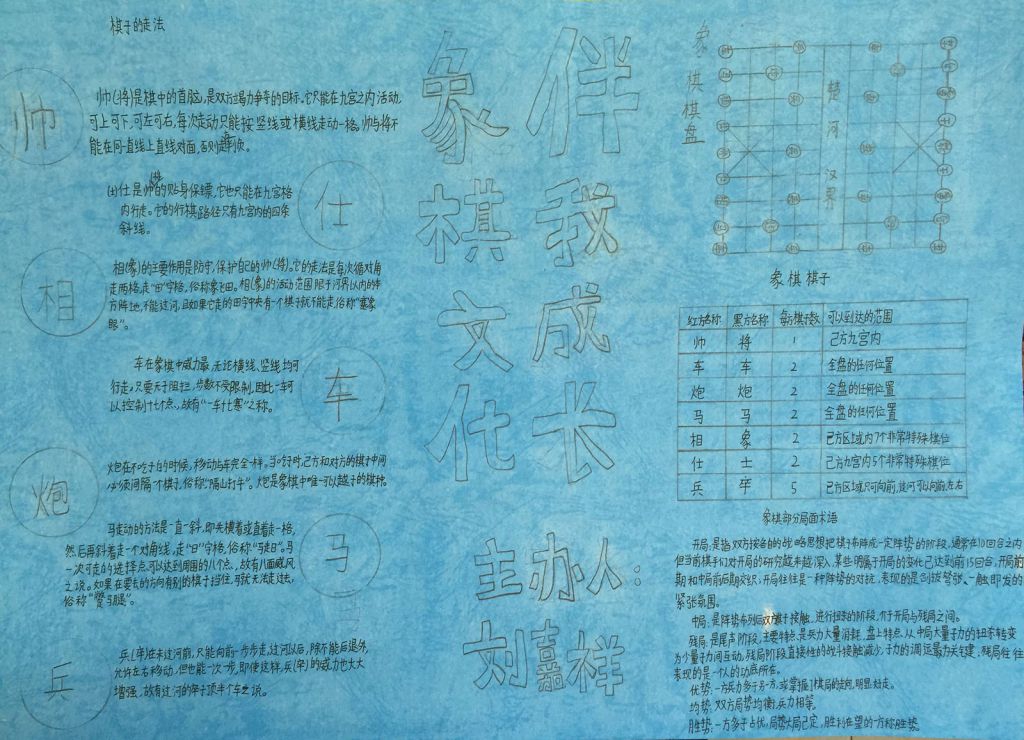 棋子的走法
帅
帅(将)是棋中的首脑,是双方竭力争夺的目标。它只能在九宫之内活动,
可上可下,可左可右,每次走动只能按竖线或横线走动一格。帅与将不
能在同一直线上直线对面,否则走方判负。
仕
(士)仕是帅(将)的贴身保镖,它也只能在九宫格
内行走。它的行棋路径只有九宫内的四条
斜线。
相
相(象)的主要作用是防守,保护自己的帅(将)。它的走法是每次循对角
走两格,走“田”字格,俗称象飞田。相(象)的活动范围限于河界以内的本
方阵地,不能过河,且如果它走的田字中央有一个棋子就不能走,俗称“塞象
眼”。
车
车在象棋中威力最,无论横线、竖线均可
行走,只要无子阻拦,步数不受限制,因此一车可
以控制十七个点,故有“一车十寒”之称。
炮
炮在不吃子的时候,移动与车完全一样。当吃子时,己方和对方的棋子中间
必须间隔1个棋子,俗称“隔山打牛”。炮是象棋中唯一可以越子的棋种。
马
马走动的方法是一直一斜,即先横着或直着走一格,
然后再斜着走一个对角线,走“日”字格,俗称“马走日”。马
一次可走的选择点可以达到周围的八个点,故有八面威风
之说。如果在要去的方向有别的棋子挡住,马就无法走过去,
俗称“蹩马腿”。
兵
兵(卒)在未过河前,只能向前一步步走,过河以后,除不能后退外,
允许左右移动,但也能一次一步,即使这样,兵(卒)的威力也大大
增强,故有过河的卒子顶半个车之说。
象棋文化
伴我成长
主办人:
刘嘉祥
象棋棋盘
楚河
汉界
象棋棋子
红方名称 黑方名称 每方棋子数 可以到达的范围
帅 将 1 己方九宫内
车 车 2 全盘的任何位置
炮 炮 2 全盘的任何位置
马 马 2 全盘的任何位置
相 象 2 己方区域内7个非常特殊棋位
仕 士 2 己方九宫内5个非常特殊棋位
兵 卒 5 己方区域只可向前,过河可以向前,左右
象棋部分局面术语
开局:是指双方按各自的战略思想把棋子布阵成一定阵势的阶段,通常在10回合之内
但当前棋手们对开局的研究越来越深入,某些明属于开局的变化已达到前15回合,开局前
期和中局前后期交织;开局往往是一种阵势的对抗,表现的是剑拔弩张、一触即发的
紧张氛围。
中局:是阵势布列后双方棋子接触,进行扭杀的阶段,介于开局与残局之间。
残局:是尾声阶段,主要特点是兵力大量消耗,盘上特点从中局大量子力的扭杀转变
为少量子力间互动,残局阶段直接性的战斗接触减少,子力的调运最为关键,残局往往
表现的是一个人的功底所在。
优势:一方兵力多于另一方,或掌握了棋局的走向,明显好走。
均势:双方局势均衡,兵力相等。
胜势:一方多子占优,局势大局已定,胜利在望的一方称胜势。